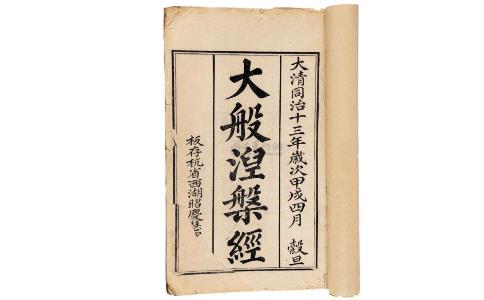 大清同治十三年歲次甲戌四月 穀旦
大般涅槃經
板存杭省西湖昭慶慧空